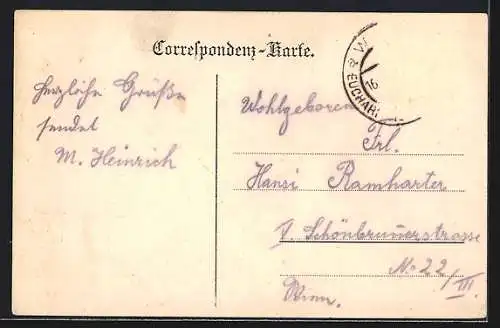 Correspondenz-Karte.
W
EUCHAR
16
herzliche Grüße
sendet
M. Heinrich
Wohlgeboren
Frl.
Hansi Ramharter
V. Schönbrunnerstrasse
No 22/III.
Wien.